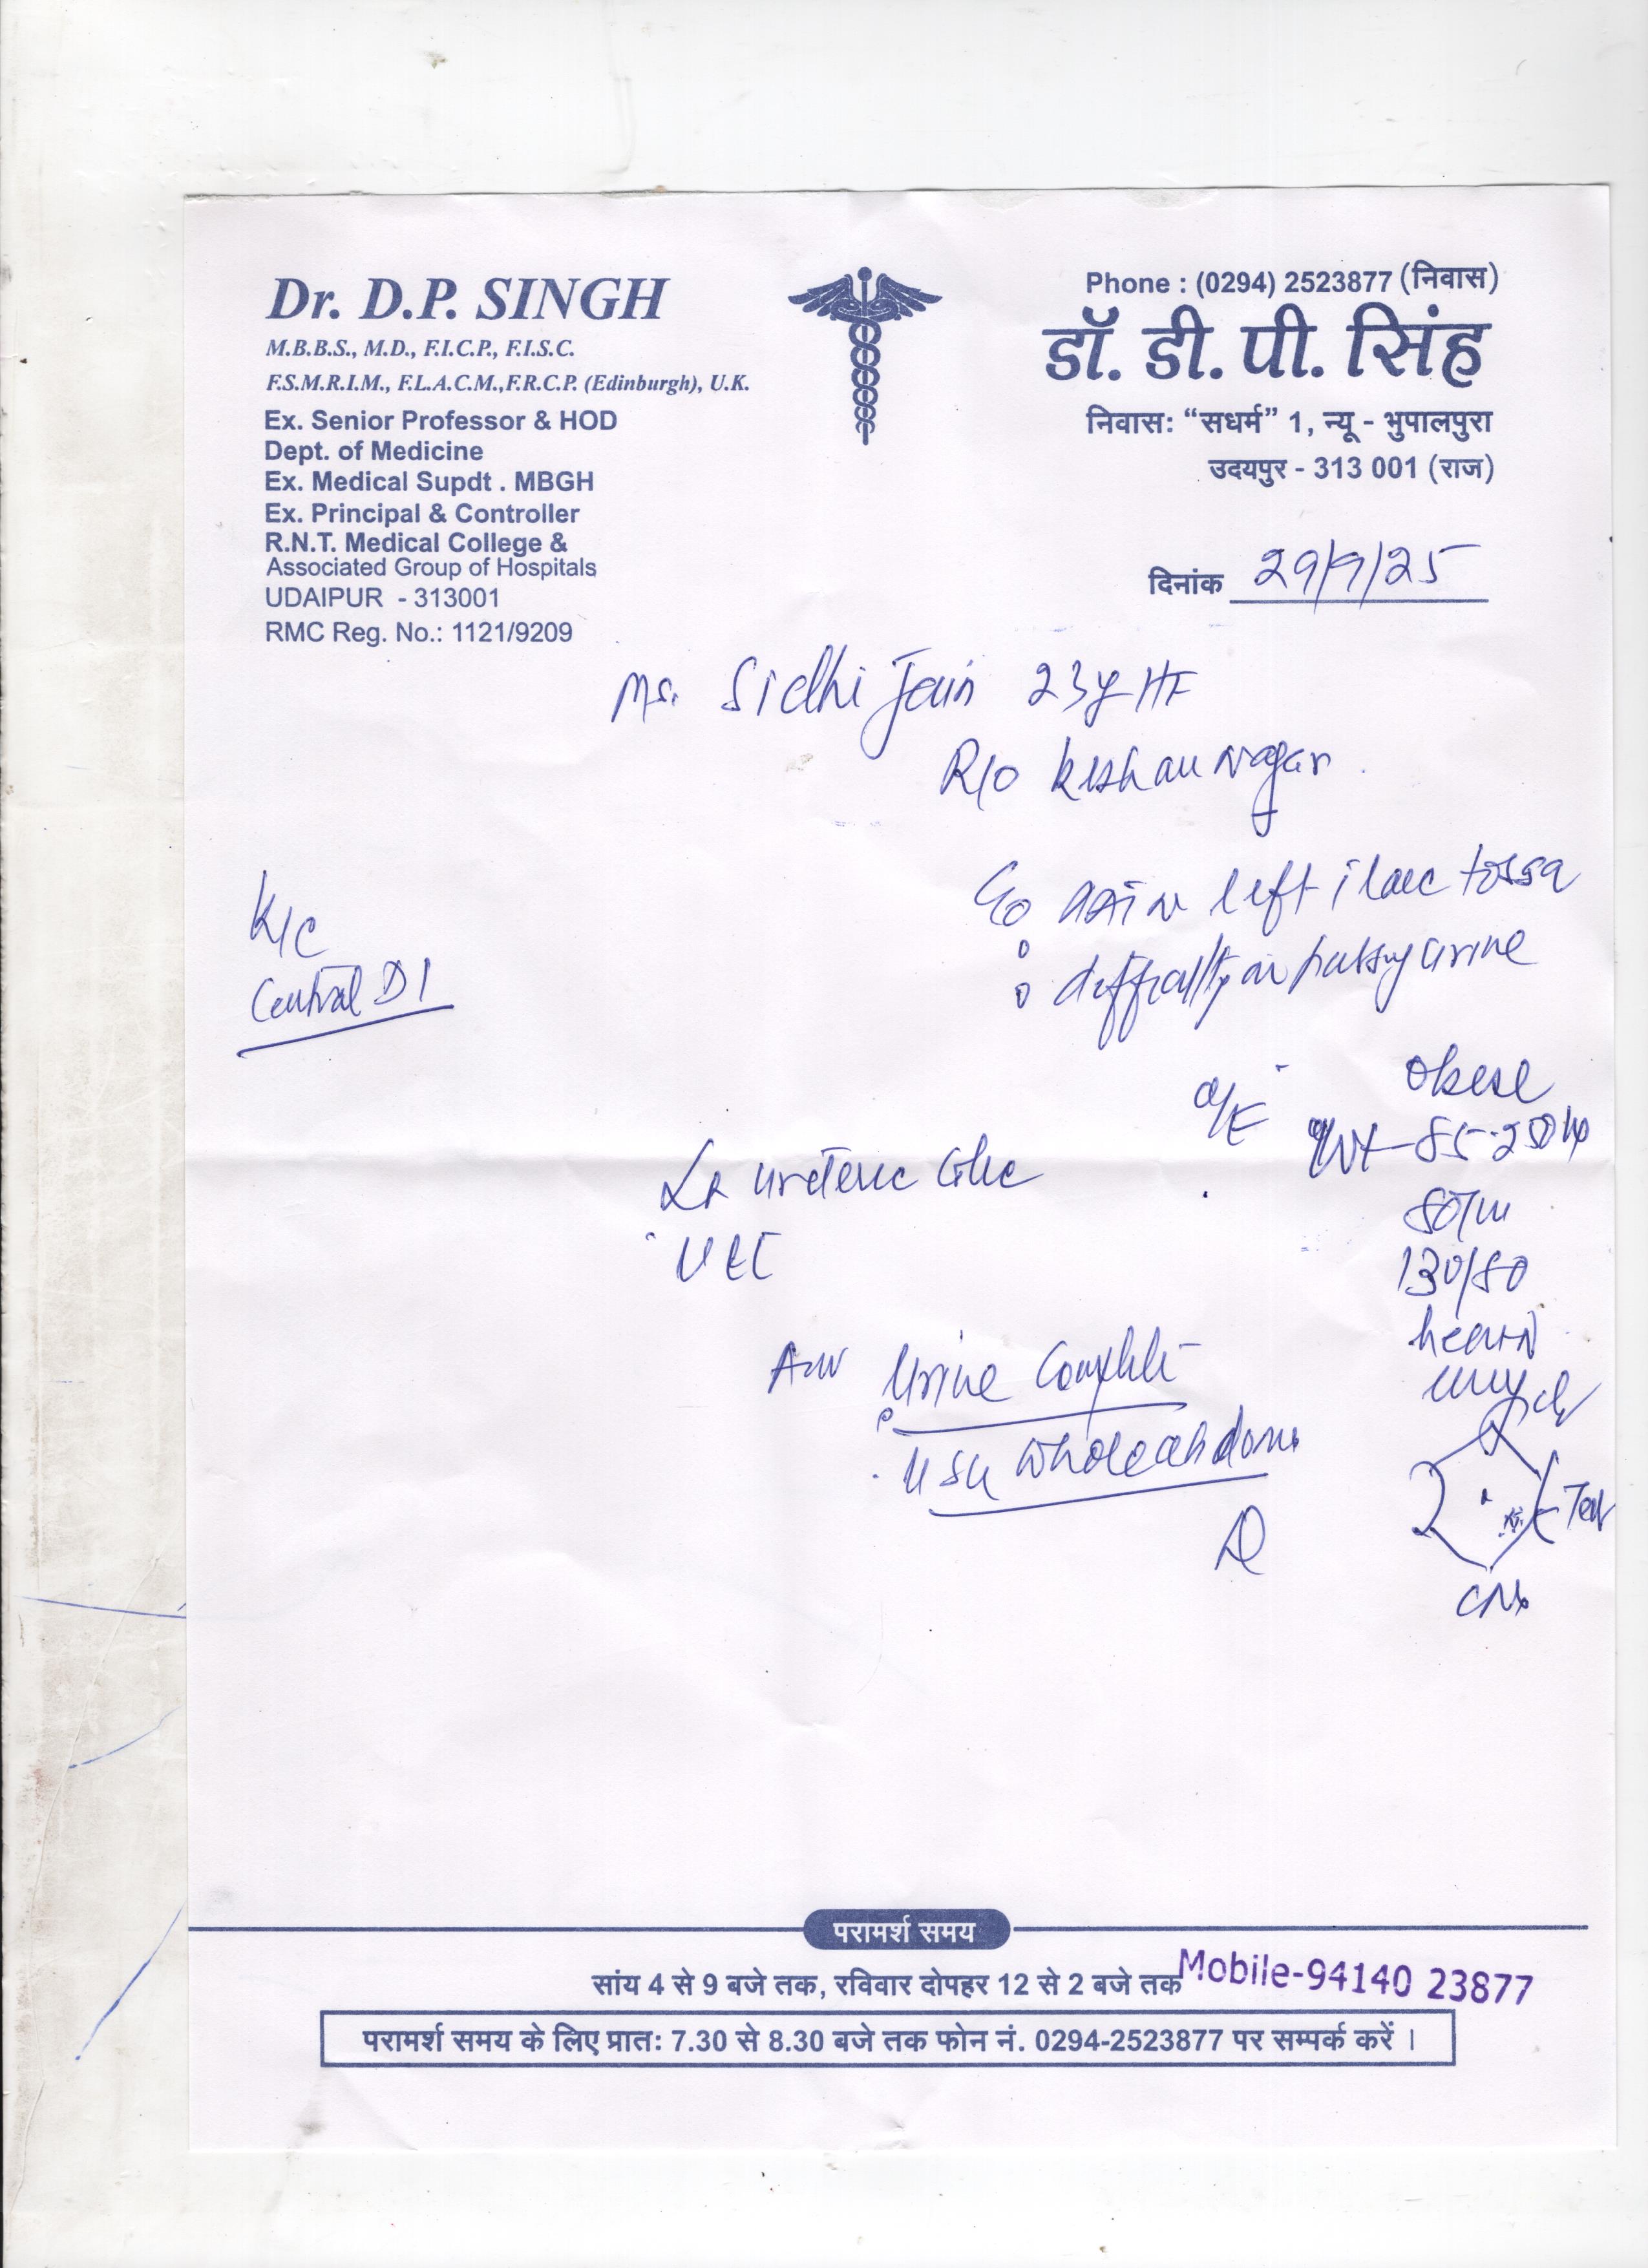 Dr. D.P. SINGH
M.B.B.S., M.D., F.I.C.P., F.I.S.C.
F.S.M.R.I.M., F.L.A.C.M.,F.R.C.P. (Edinburgh), U.K.
Ex. Senior Professor & HOD
Dept. of Medicine
Ex. Medical Supdt . MBGH
Ex. Principal & Controller
R.N.T. Medical College &
Associated Group of Hospitals
UDAIPUR - 313001
RMC Reg. No.: 1121/9209
Phone : (0294) 2523877 (निवास)
डॉ. डी. पी. सिंह
निवास: “सधर्म” 1, न्यू - भुपालपुरा
उदयपुर - 313 001 (राज)
दिनांक 29/9/25
Ms. Sidhi Jain 23y HF
R/o Keshav Nagar
K/c
Central DI
C/o pain left iliac fossa
difficulty in passing urine
O/E
Obese
Wt - 85.250
80/m
130/80
heart N
Lt ureteric colic
Adv Urine Complete
USG whole abdomen
CNS
परामर्श समय
सांय 4 से 9 बजे तक, रविवार दोपहर 12 से 2 बजे तक
Mobile-94140 23877
परामर्श समय के लिए प्रात: 7.30 से 8.30 बजे तक फोन नं. 0294-2523877 पर सम्पर्क करें ।